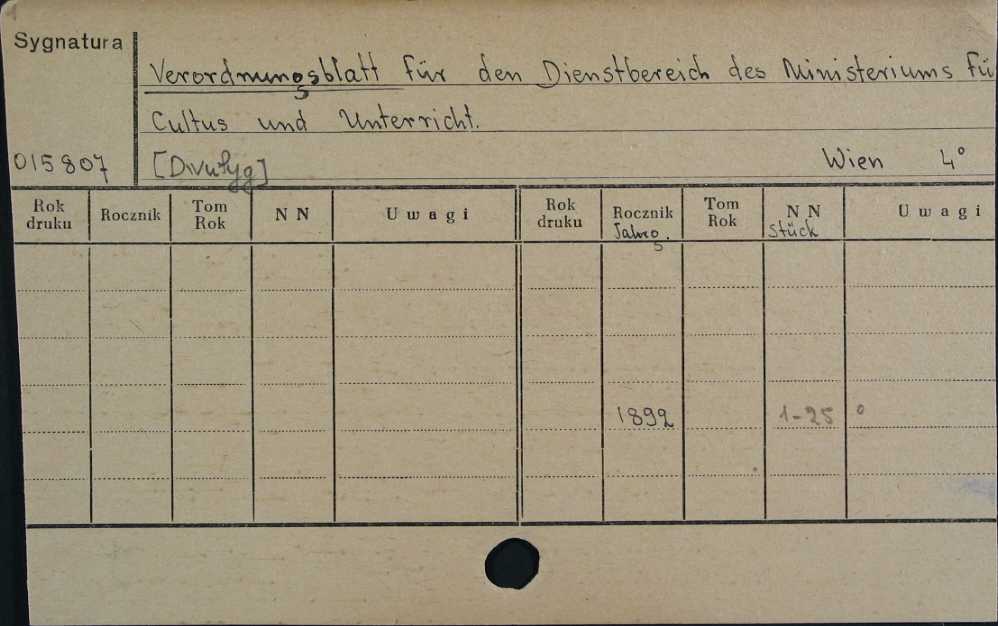 Sygnatura
Verordnungsblatt für den Dienstbereich des Ministeriums fü
Cultus und Unterricht.
015807 [Dwutyg] Wien 4°
Rok druku Rocznik Tom Rok NN Uwagi Rok druku Rocznik Tom Rok NN Uwagi
Jahrg. Stück
1892 1-25 °